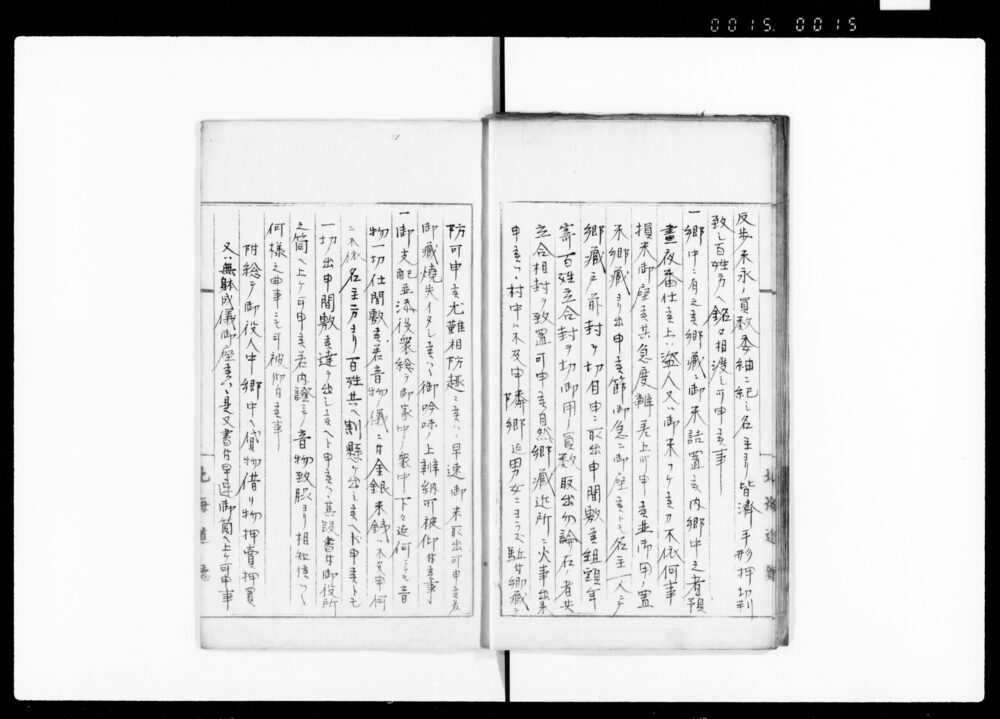 0015. 0015
反歩未永ノ員数委細ニ紀シ名主ヨリ皆済手形押切判
致シ百姓方ヘ銘々相渡シ可申亥事
一郷中ニ有之亥郷蔵ニ御米詰置亥内郷中之者預
昼夜番仕亥上ハ盗人又ハ御米フケ亥カ不依何事
損米御座亥共急度辨差上可申亥並御用ノ置
米郷蔵ヨリ出申亥節御急ニ御座亥トモ名主一人ニテ
郷蔵之前封ヲ切自由ニ取出申間敷亥組頭年
寄百姓立合封ヲ切御用ノ員数取出勿論右ノ者共
立合相封ヲ致置可申亥自然郷蔵近所ニ火事出来
申亥ハヽ村中ハ不及申隣郷迄男女ニヨラズ駈付郷蔵ヲ
防可申亥尤難相防趣ニ亥ハヽ早速御米取出可申亥若
御蔵焼失イタシ亥ハヽ御吟味ノ上辨納可被仰付亥事
一御支配並添役衆総テ御家中ノ衆中下々迄何ニテモ音
物一切仕間敷亥若音物儀ニ付金銀米銭ハ不及申何
ニ不依名主方ヨリ百姓共ヘ割懸ケ出シ亥ヘト申亥トモ
一切出申間敷亥達テ出シ亥ヘト申亥ハヽ其段書付御役所
之筒ヘ上ケ可申亥若内證ニテ音物致脇ヨリ相知候ハヽ
何様之曲事ニモ可被仰付亥事
附総テ御役人中郷中ヘ貸物借リ物押賣押買
又ハ無躰成儀御座亥ハヽ是又書付早速御筒ヘ上ケ可申事
北海道廳
北海道廳